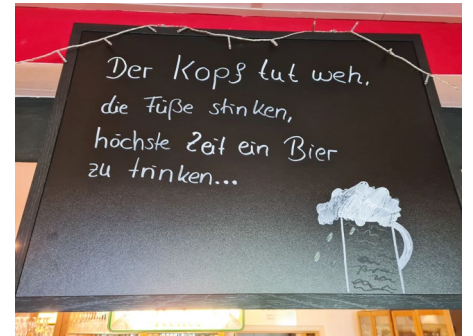 Der Kopf tut weh,
die Füße stinken,
höchste Zeit ein Bier
zu trinken...